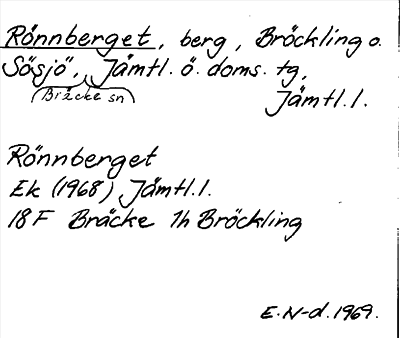 Rönnberget, berg, Bröckling o.
Sösjö, Jämtl. ö. doms. tg,
Bräcke sn
Jämtl. l.
Rönnberget
Ek (1968) Jämtl. l.
18 F Bräcke 1h Bröckling
E. N-d. 1969.